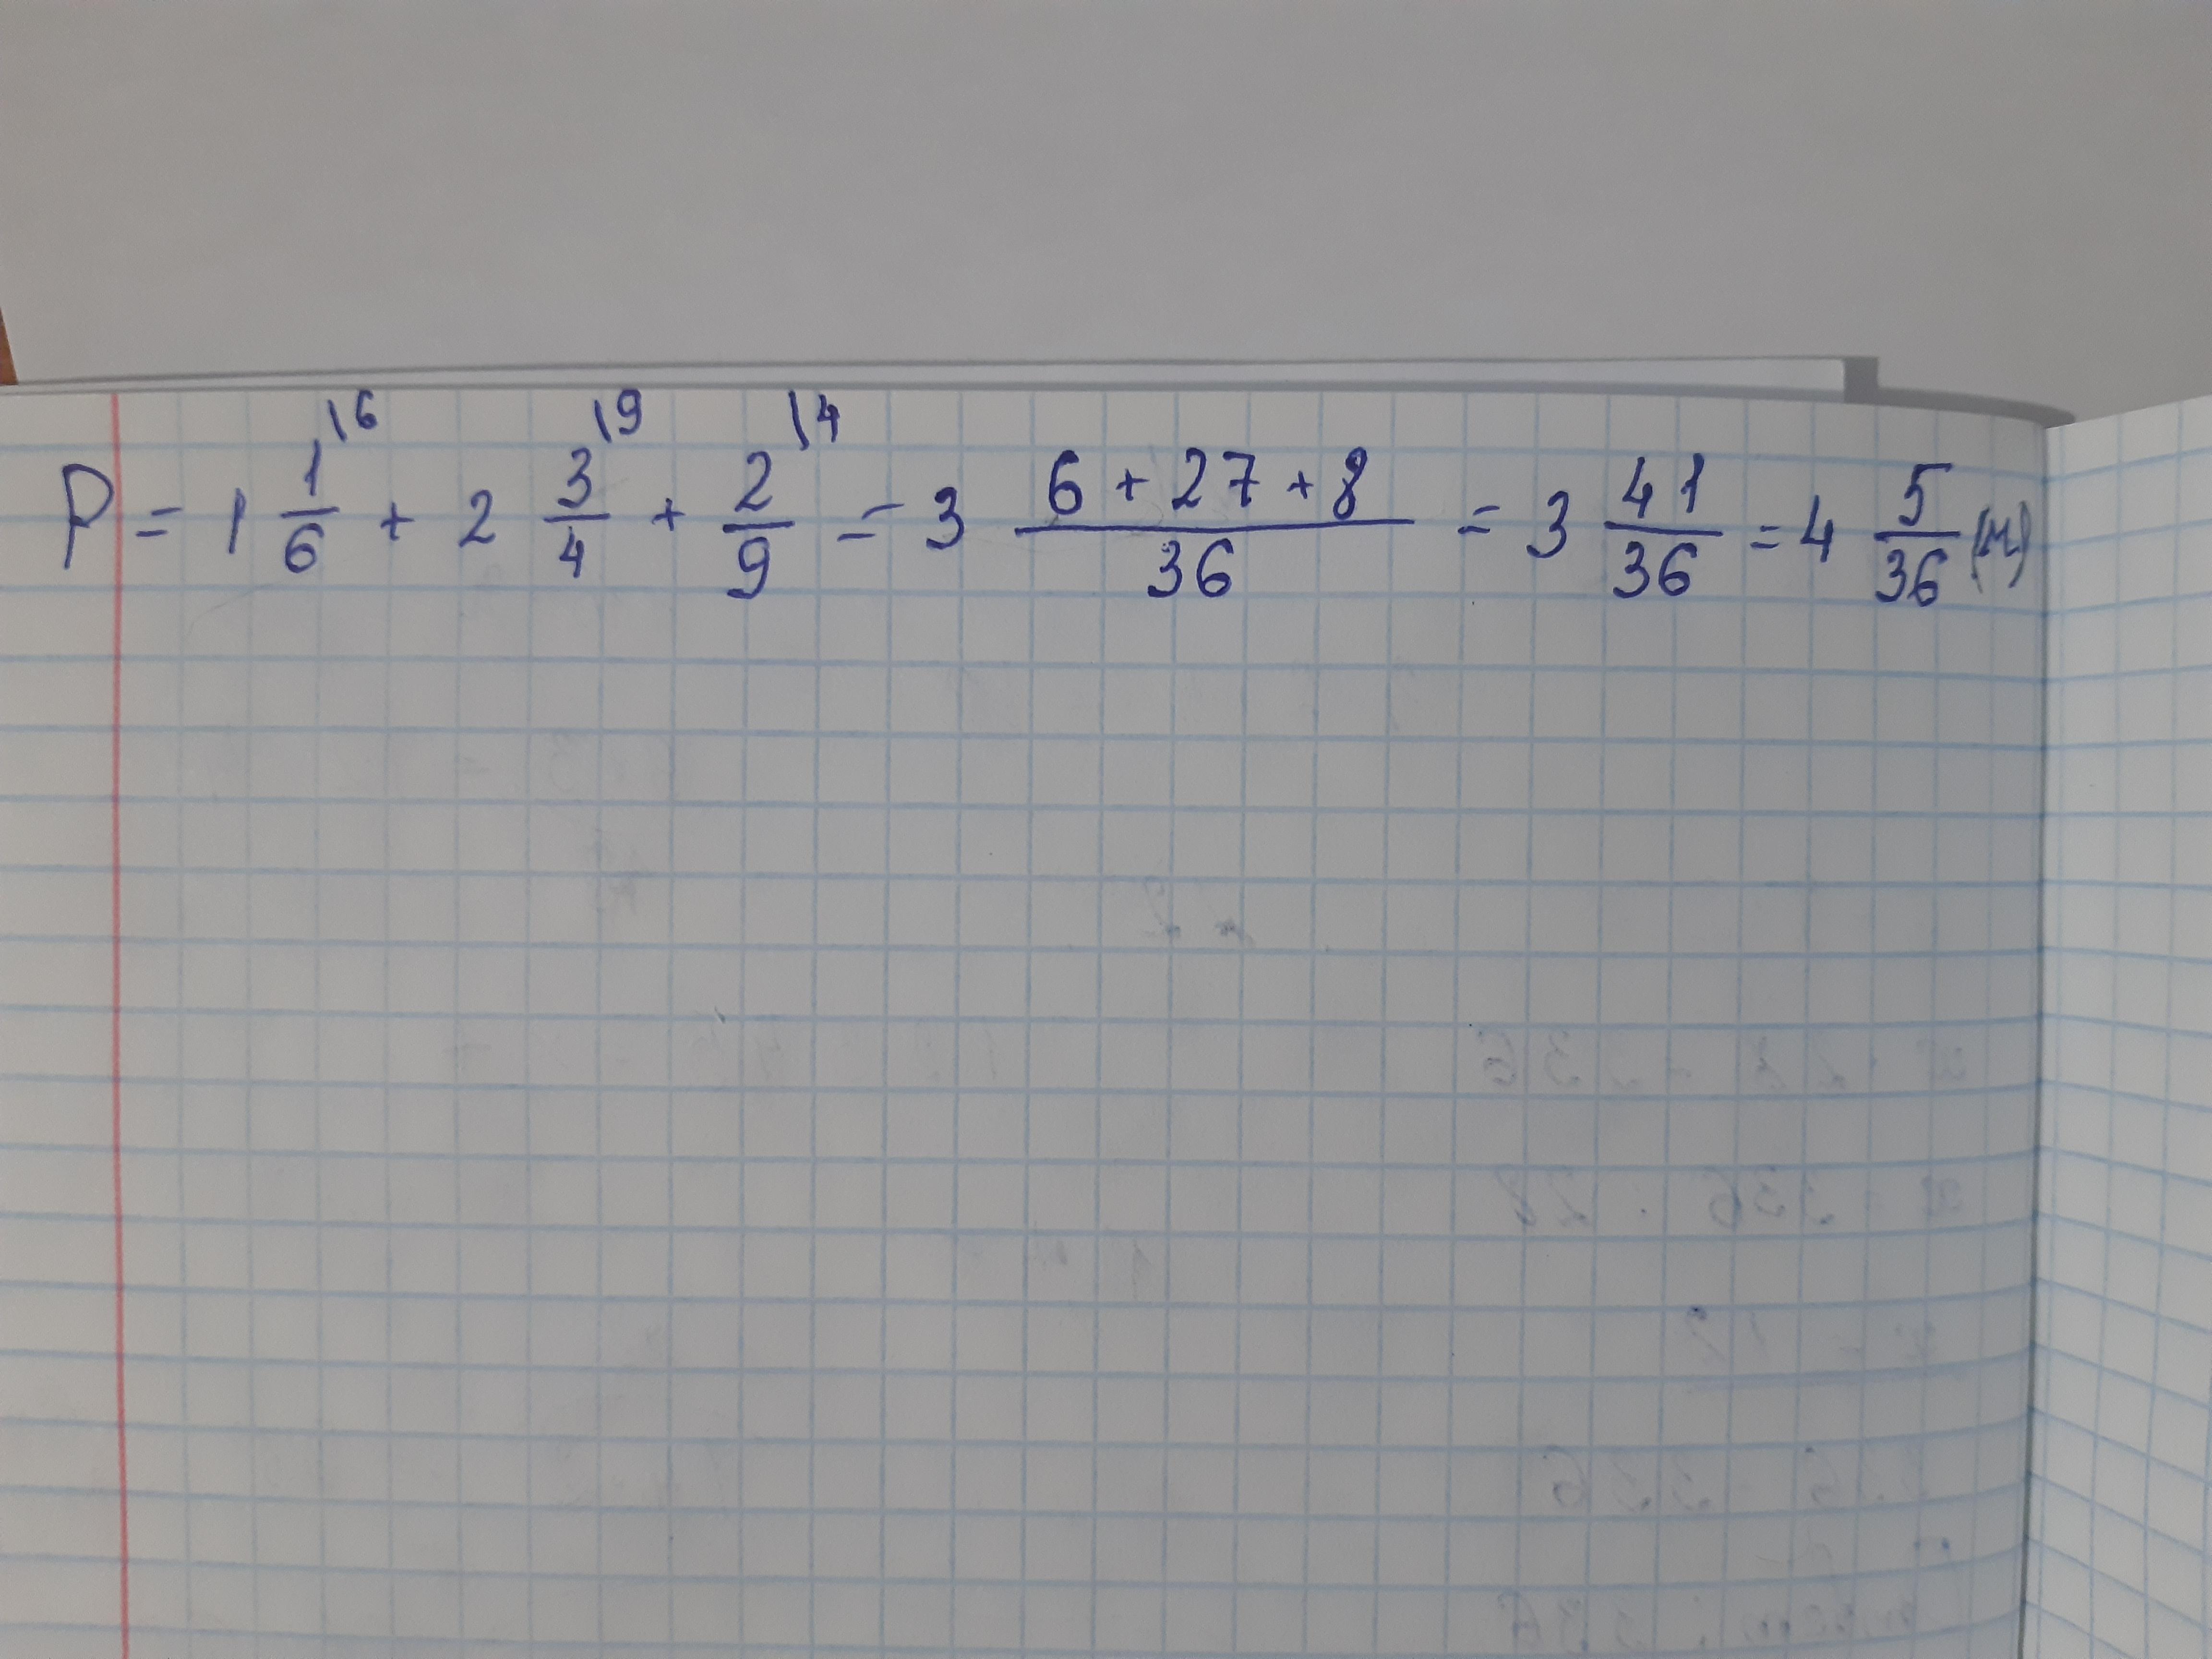 P = 1 1/6 \6 + 2 3/4 \9 + 2/9 \4 = 3 (6 + 27 + 8)/36 = 3 41/36 = 4 5/36 (м)